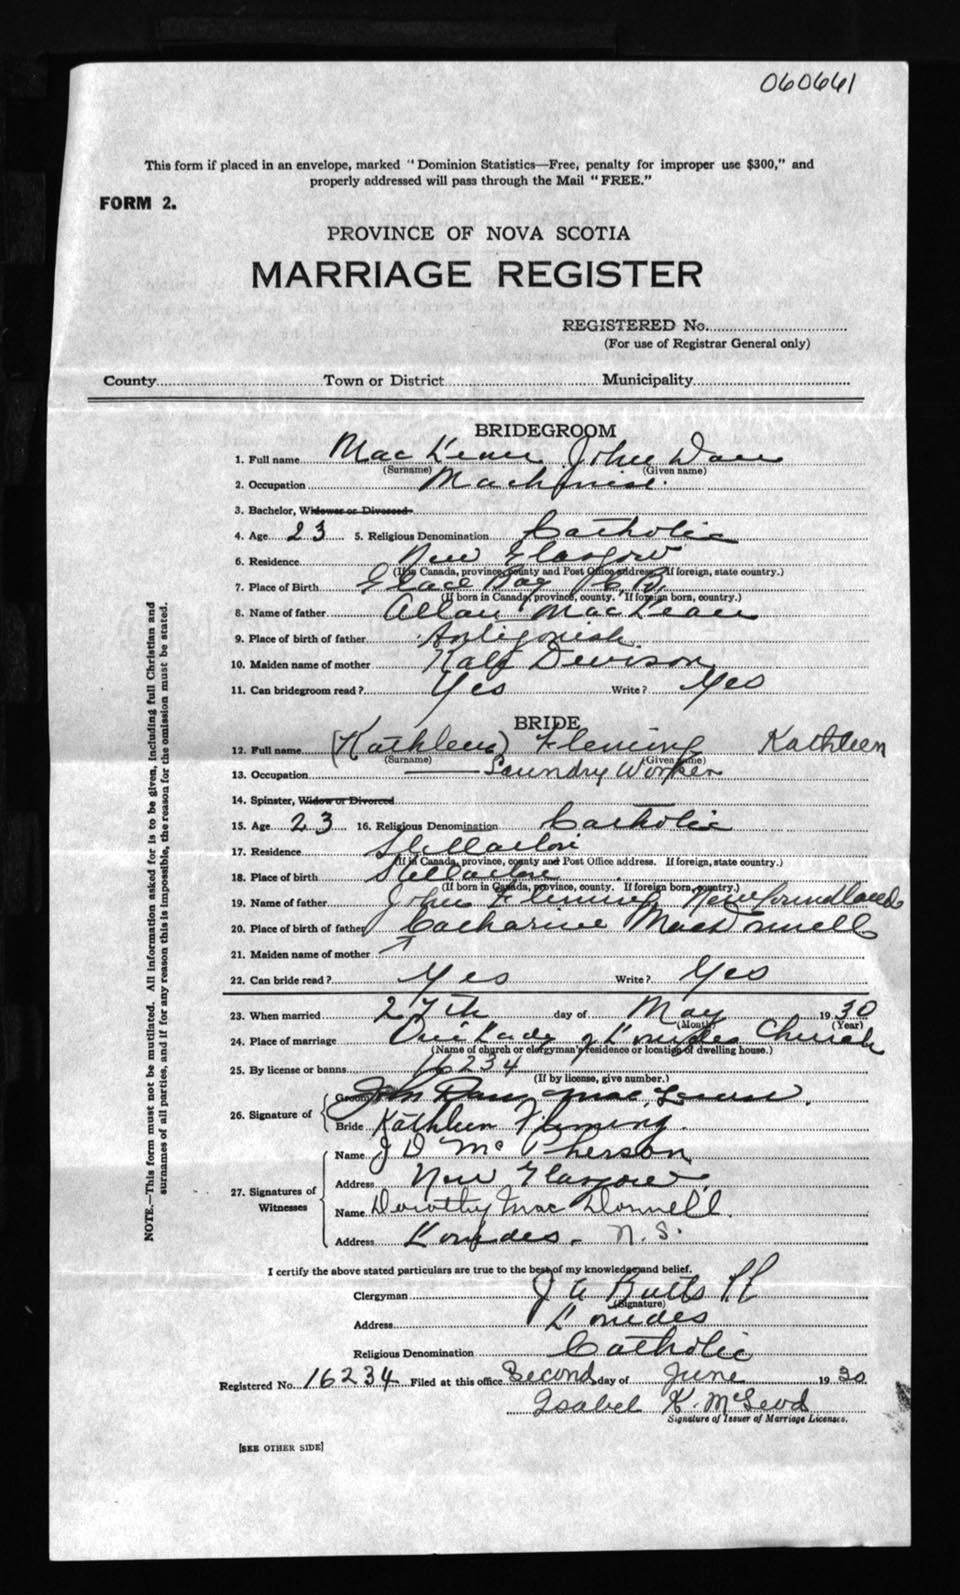 060661
This form if placed in an envelope, marked "Dominion Statistics—Free, penalty for improper use $300," and
properly addressed will pass through the Mail "FREE."
FORM 2.
PROVINCE OF NOVA SCOTIA
MARRIAGE REGISTER
REGISTERED No.
(For use of Registrar General only)
County Town or District Municipality
BRIDEGROOM
1. Full name MacLean John Dan
(Surname) (Given name)
2. Occupation Machinist
3. Bachelor, Widower or Divorced
4. Age 23 5. Religious Denomination Catholic
6. Residence New Glasgow
(If in Canada, province, county and Post Office address. If foreign, state country.)
7. Place of Birth Glace Bay C. B.
(If born in Canada, province, county. If foreign born, country.)
8. Name of father Allan MacLean
9. Place of birth of father Antigonish
10. Maiden name of mother Kate
11. Can bridegroom read? Yes Write? Yes
BRIDE
12. Full name (Kathleen) Fleming Kathleen
(Surname) (Given name)
13. Occupation Laundry Worker
14. Spinster, Widow or Divorced
15. Age 23 16. Religious Denomination Catholic
17. Residence Stellarton
(If in Canada, province, county and Post Office address. If foreign, state country.)
18. Place of birth Stellarton
(If born in Canada, province, county. If foreign born, country.)
19. Name of father John Fleming Newfoundland
20. Place of birth of father Catharine MacDonnell
21. Maiden name of mother
22. Can bride read? Yes Write? Yes
23. When married 27th day of May 1930
(Month) (Year)
24. Place of marriage Our Lady of Lourdes Church
(Name of church or clergyman's residence or location of dwelling house.)
25. By license or banns 16234
(If by license, give number.)
26. Signature of
Groom John Dan MacLean.
Bride Kathleen Fleming.
27. Signatures of Witnesses
Name J D McPherson
Address New Glasgow
Name Dorothy MacDonnell.
Address Lourdes. N.S.
I certify the above stated particulars are true to the best of my knowledge and belief.
Clergyman J A Butts P.P.
(Signature)
Address Lourdes
Religious Denomination Catholic
Registered No. 16234 Filed at this office Second day of June 1930
Isabel K. McLeod
Signature of Issuer of Marriage Licenses.
[SEE OTHER SIDE]
NOTE.—This form must not be mutilated. All information asked for is to be given, including full Christian and
surnames of all parties, and if for any reason this is impossible, the reason for the omission must be stated.